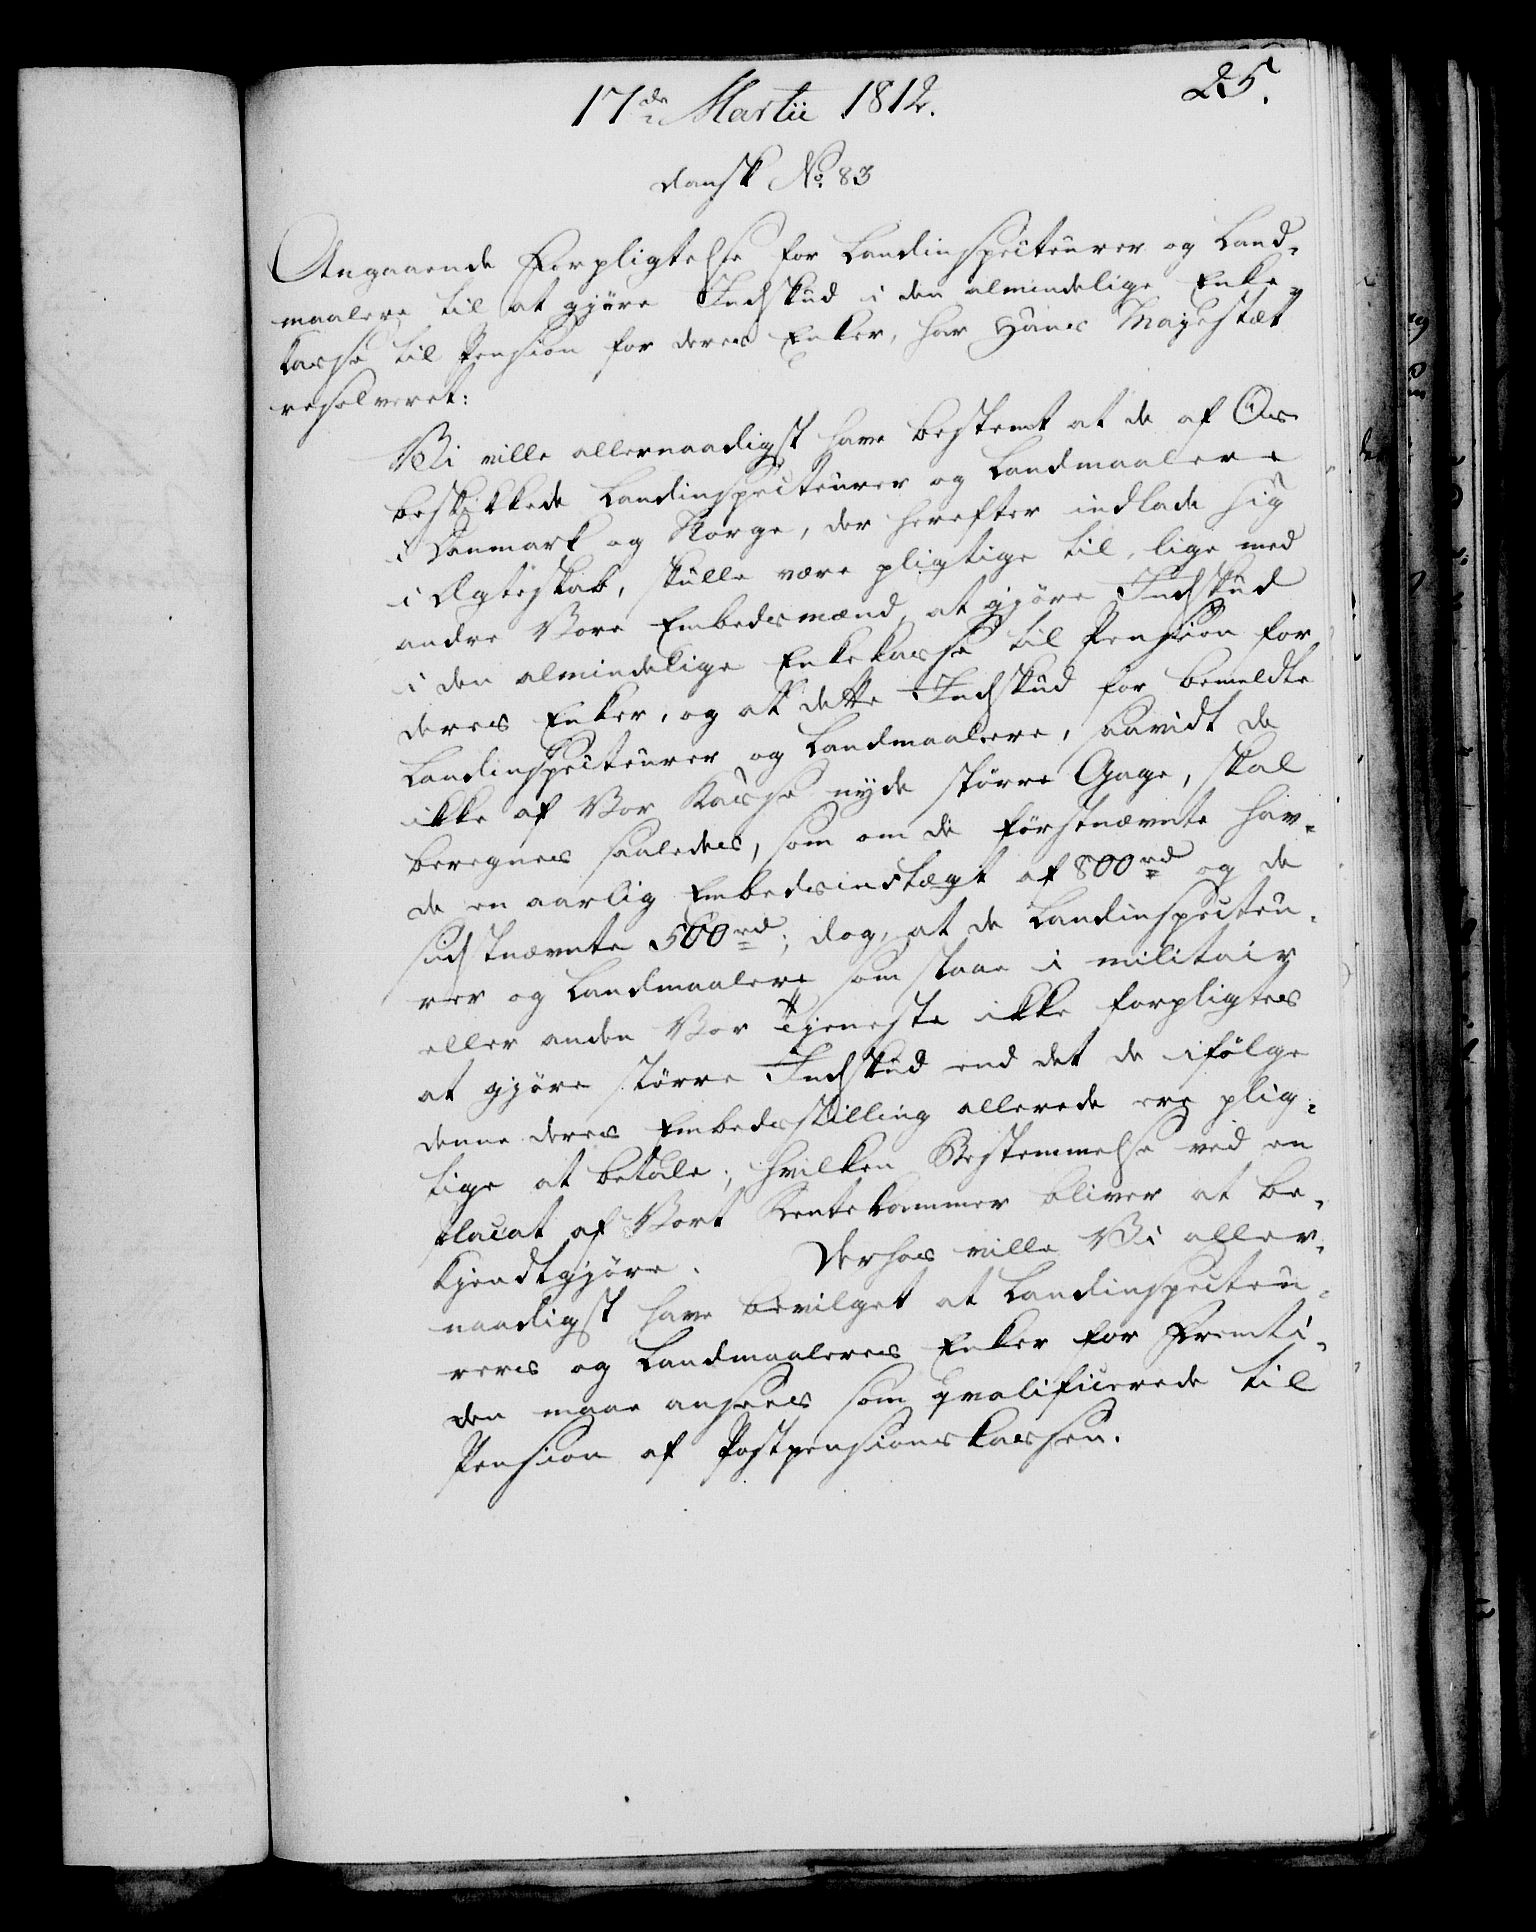 17de Martii 1812.
25.
dansk No. 83
Angaaende Forpligtelse for Landinspecteurer og Land-
maalere til at gjöre Indskud i den almindelige Enke-
kasse til Pension for deres Enker, har Hans Mayestæt
resolveret:
Vi ville allernaadigst have bestemt at de af Os
beskikkede Landinspecteurer og Landmaalere
i Danmark og Norge, der herefter indlade sig
i Ægteskab, skulle være pligtige til, lige med
andre Vore Embedsmænd, at gjöre Indskud
i den almindelige Enkekasse til Pension for
deres Enker, og at dette Indskud for bemeldte
Landinspecteurer og Landmaalere, saavidt de
ikke af Vor Kasse nyde större Gage, skal
beregnes saaledes, som om de förstnævnte hav-
de en aarlig Embedsindtægt af 800 rd og de
sidstnævnte 500 rd; dog, at de Landinspecteu-
rer og Landmaalere som staae i militair
eller anden Vor Tjeneste ikke forpligtes
at gjöre större Indskud end det de ifölge
denne deres Embedsstilling allerede ere plig-
tige at betale; hvilken Bestemmelse ved en
Placat af Vort Rentekammer bliver at be-
kjendtgjöre. Derhos ville Vi aller-
naadigst have bevilget at Landinspecteu-
rers og Landmaaleres Enker for Fremti-
den maae ansees som qvalificerede til
Pension af Postpensionskassen.